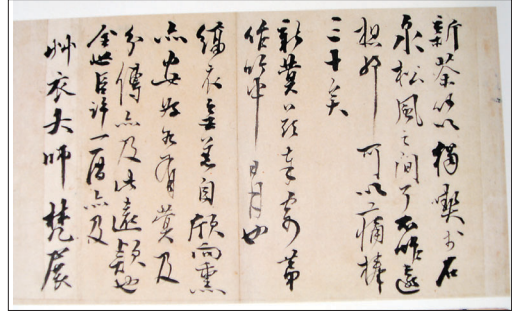 新茶何以獨喫於石
泉松風之間了不作遠
想耶 可以痛棒
三十矣
新蓂奉寄
作竹中日月也
縞衣無恙自欣向熏
亦安好各有蓂及
分傳亦及此遠頌也
金世臣許一曆亦及
艸衣大師 梵展